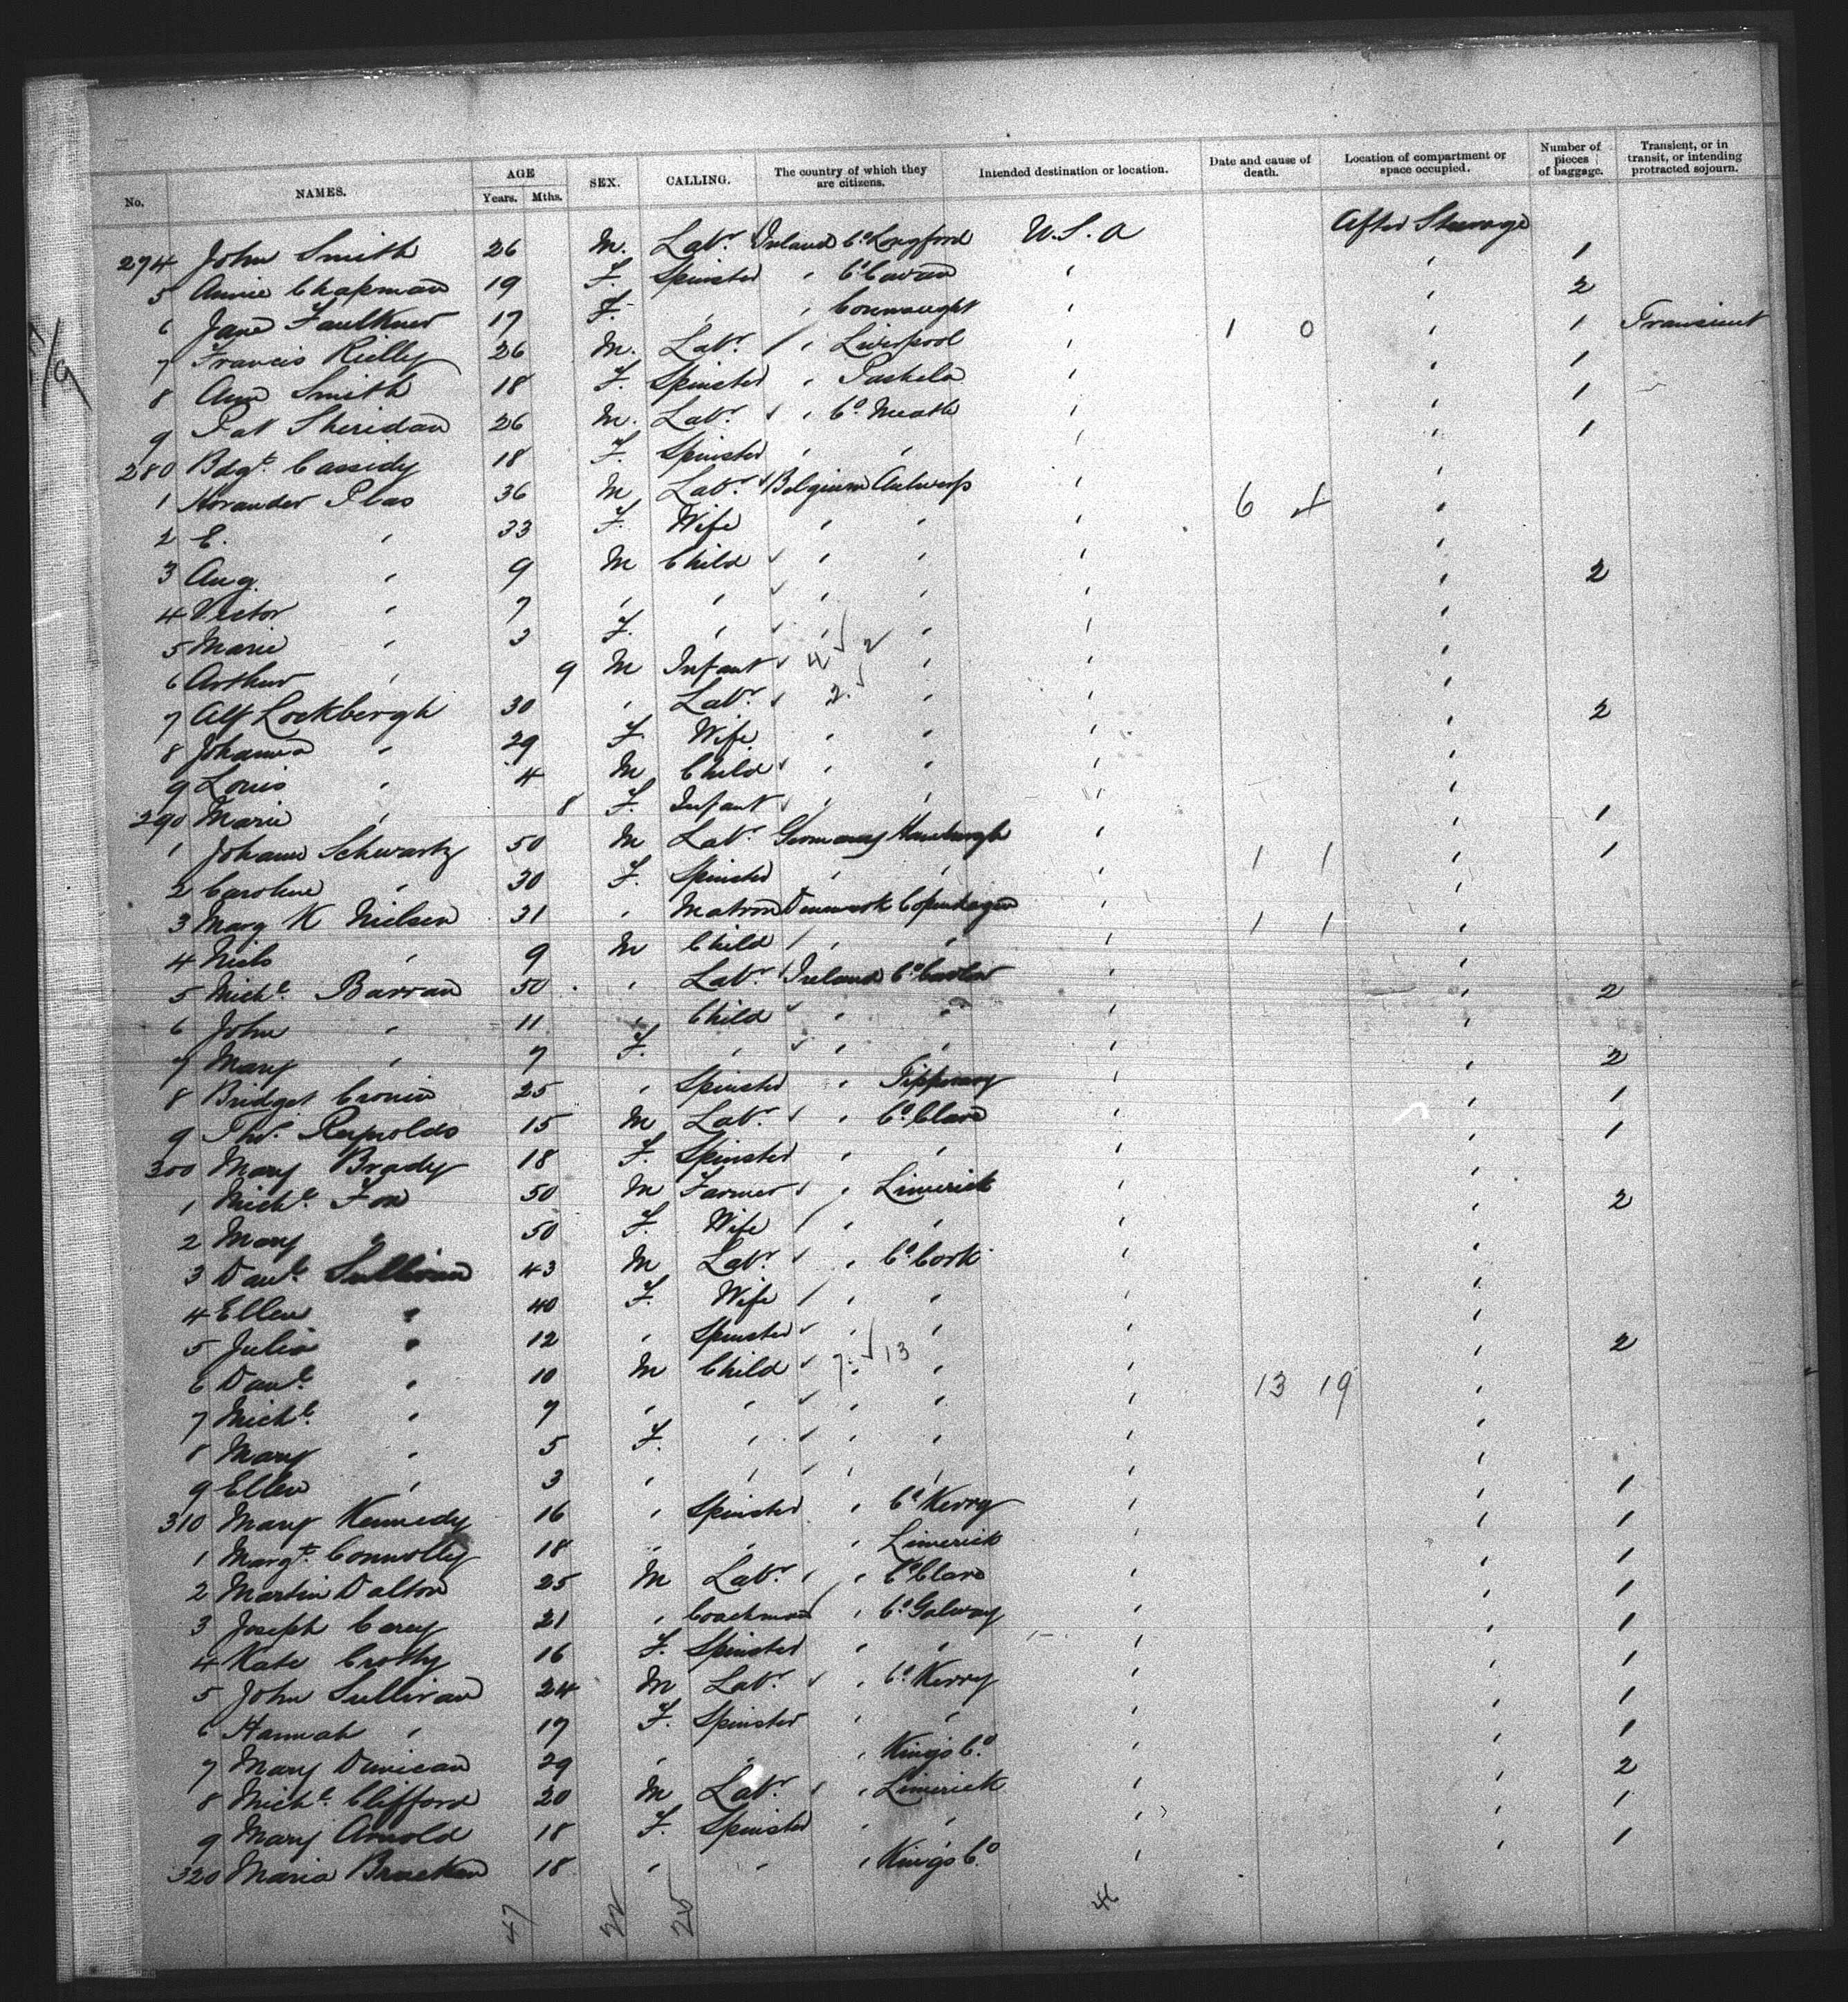 No. NAMES. AGE Years. Mths. SEX. CALLING. The country of which they are citizens. Intended destination or location. Date and cause of death. Location of compartment or space occupied. Number of pieces of baggage. Transient, or in transit, or intending protracted sojourn.
274 John Smith 26 M. Labr Ireland Co Longford U.S.A After Steerage 1
5 Annie Chapman 19 F. Spinster " Co Cavan " " 2
6 Jane Faulkner 17 F. " " Connaught " " 1 Transient
7 Francis Rielly 26 M. Labr " Liverpool " 1 0 " 1
8 Ann Smith 18 F. Spinster " " " 1
9 Pat Sheridan 26 M. Labr " Co. Meath " " 1
280 Bdgt. Cassidy 18 F. Spinster " " " "
1 Plas 36 M Labr Belgium Antwerp " "
2 E. " 33 F. Wife " " " 6 4 "
3 Aug. " 9 M Child " " " " 2
4 Victor " 7 " " " " " "
5 Marie " 3 F. " " " " "
6 Arthur " 9 M Infant 4 2 " " "
7 Alf Lockbergh 30 " Labr 2 " " " 2
8 Johanna " 29 F Wife " " " "
9 Louis " 4 M Child " " " "
290 Marie " 8 F. Infant " " " " 1
1 Johann Schwartz 50 M Labr Germany Hamburgh " " 1
2 Caroline " 30 F. Spinster " " " 1 1 "
3 Mary K Nielsen 31 " Matron Denmark Copenhagen " "
4 Niels " 9 M Child " " " 1 1 "
5 Michl. Barran 50 " Labr Ireland Co Carlow " " 2
6 John " 11 " Child " " " "
7 Mary " 7 F. " " " " " 2
8 Bridget Cronin 25 " Spinster " Tipperary " " 1
9 Thos. Reynolds 15 M Labr " Co. Clare " " 1
300 Mary Brady 18 F. Spinster " " " "
1 Michl. Fox 50 M Farmer " Limerick " " 2
2 Mary " 50 F. Wife " " " "
3 Danl. Sullivan 43 M Labr " Co. Cork " "
4 Ellen " 40 F. Wife " " " "
5 Julia " 12 " Spinster " " " " 2
6 Danl. " 10 M Child 7 13 " " "
7 Michl. " 7 " " " " " 13 19 "
8 Mary " 5 F. " " " " "
9 Ellen " 3 " " " " " " 1
310 Mary Kennedy 16 " Spinster " Co Kerry " " 1
1 Margt. Connolly 18 " " " Limerick " " 1
2 Martin Dalton 25 M Labr " Co Clare " " 1
3 Joseph Carey 21 " Coachman " Co. Galway " " 1
4 Kate Crotty 16 F. Spinster " " " " 1
5 John Sullivan 24 M Labr " Co. Kerry " " 1
6 Hannah " 17 F. Spinster " " " " 1
7 Mary Dunican 29 " " " Kings Co. " " 2
8 Michl. Clifford 20 M Labr " Limerick " " 1
9 Mary Arnold 18 F. Spinster " " " " 1
320 Maria Bracken 18 " " " Kings Co. "
47 22 25 46